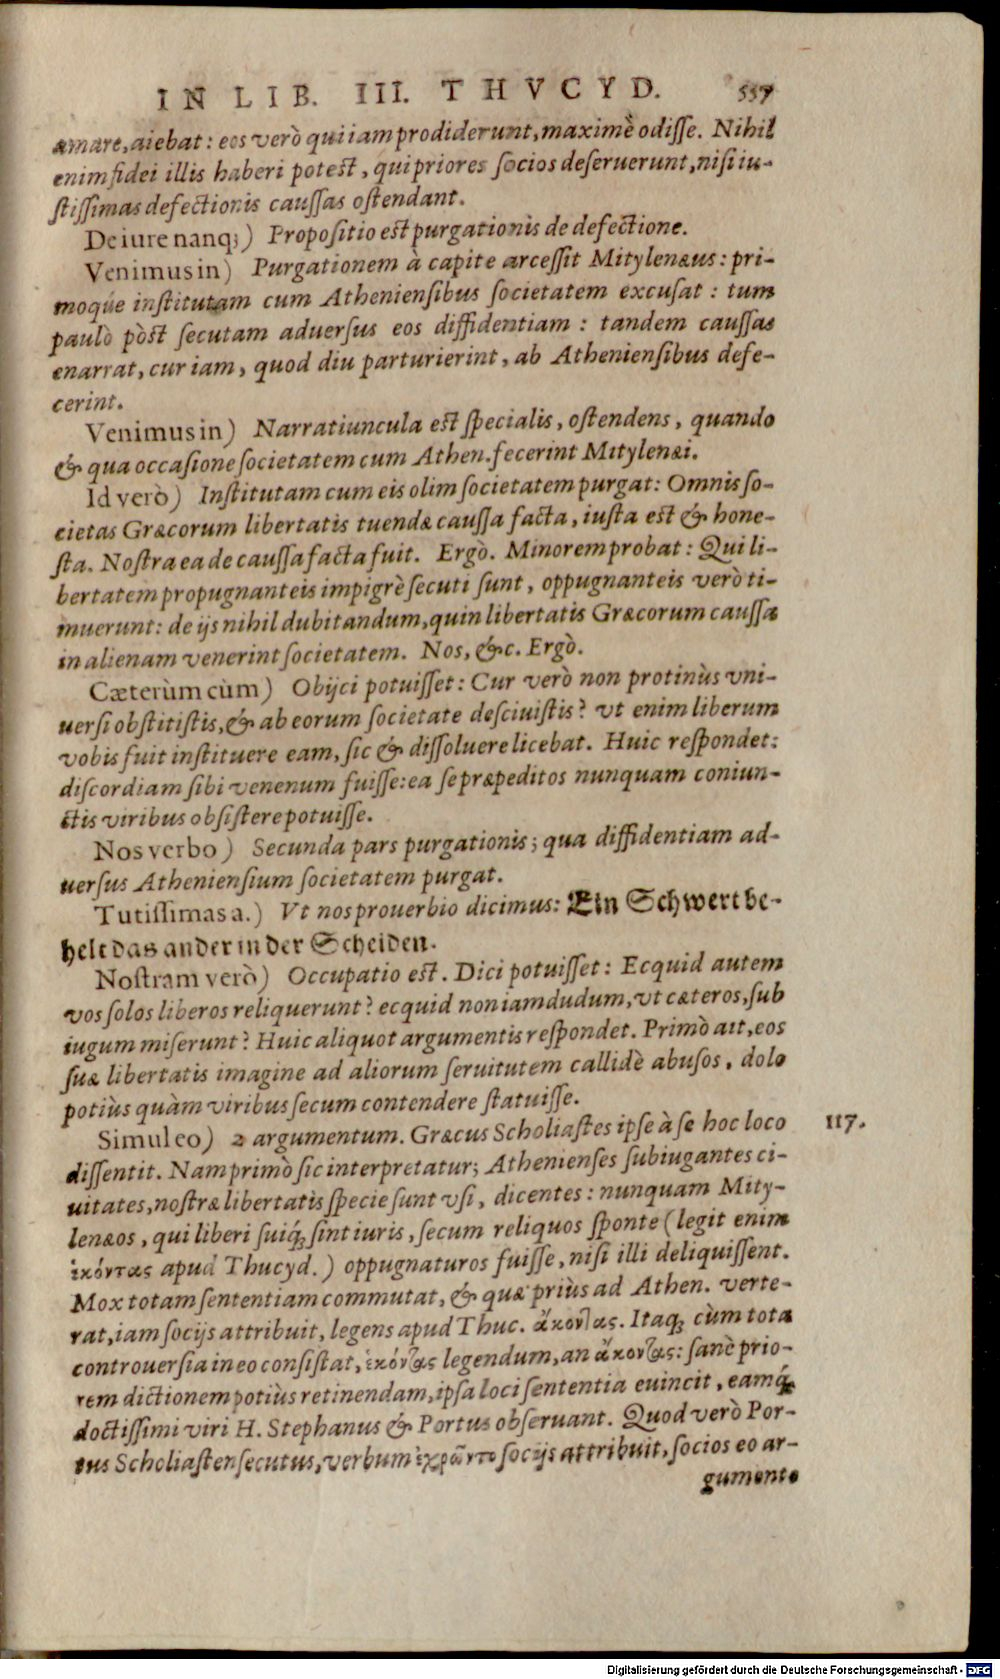 IN LIB. III. THVCYD. 557
amare, aiebat: eos verò qui iam prodiderunt, maximè odisse. Nihil
enim fidei illis haberi potest, qui priores socios deseruerunt, nisi iu-
stissimas defectionis caussas ostendant.
De iure nanq;) Propositio est purgationis de defectione.
Venimus in) Purgationem à capite arcessit Mitylenæus: pri-
moq́ue institutam cum Atheniensibus societatem excusat: tum
paulò pòst secutam aduersus eos diffidentiam: tandem caussas
enarrat, cur iam, quod diu parturierint, ab Atheniensibus defe-
cerint.
Venimus in) Narratiuncula est specialis, ostendens, quando
& qua occasione societatem cum Athen. fecerint Mitylenæi.
Id verò) Institutam cum eis olim societatem purgat: Omnis so-
cietas Græcorum libertatis tuendæ caussa facta, iusta est & hone-
sta. Nostra ea de caussa facta fuit. Ergò. Minorem probat: Qui li-
bertatem propugnanteis impigrè secuti sunt, oppugnanteis verò ti-
muerunt: de ijs nihil dubitandum, quin libertatis Græcorum caussa
in alienam venerint societatem. Nos, &c. Ergò.
Cæterùm cùm) Obijci potuisset: Cur verò non protinùs vni-
uersi obstitistis, & ab eorum societate desciuistis? vt enim liberum
vobis fuit instituere eam, sic & dissoluere licebat. Huic respondet:
discordiam sibi venenum fuisse: ea se præpeditos nunquam coniun-
ctis viribus obsistere potuisse.
Nos verbo) Secunda pars purgationis; qua diffidentiam ad-
uersus Atheniensium societatem purgat.
Tutissimas a.) Vt nos prouerbio dicimus: Ein Schwert be-
helt das ander in der Scheiden.
Nostram verò) Occupatio est. Dici potuisset: Ecquid autem
vos solos liberos reliquerunt? ecquid non iamdudum, vt cæteros, sub
iugum miserunt? Huic aliquot argumentis respondet. Primò ait, eos
suæ libertatis imagine ad aliorum seruitutem callidè abusos, dolo
potiùs quàm viribus secum contendere statuisse.
Simul eo) 2 argumentum. Græcus Scholiastes ipse à se hoc loco 117.
dissentit. Nam primò sic interpretatur; Athenienses subiugantes ci-
uitates, nostræ libertatis specie sunt vsi, dicentes: nunquam Mity-
lenæos, qui liberi suiq́; sint iuris, secum reliquos sponte (legit enim
ἑκόντας apud Thucyd.) oppugnaturos fuisse, nisi illi deliquissent.
Mox totam sententiam commutat, & quæ priùs ad Athen. verte-
rat, iam socijs attribuit, legens apud Thuc. ἄκοντας. Itaq; cùm tota
controuersia in eo consistat, ἑκόντας legendum, an ἄκοντας: sanè prio-
rem dictionem potiùs retinendam, ipsa loci sententia euincit, eamq́;
doctissimi viri H. Stephanus & Portus obseruant. Quod verò Por-
tus Scholiasten secutus, verbum ἐχρῶντο socijs attribuit, socios eo ar-
gumento
Digitalisierung gefördert durch die Deutsche Forschungsgemeinschaft - DFG